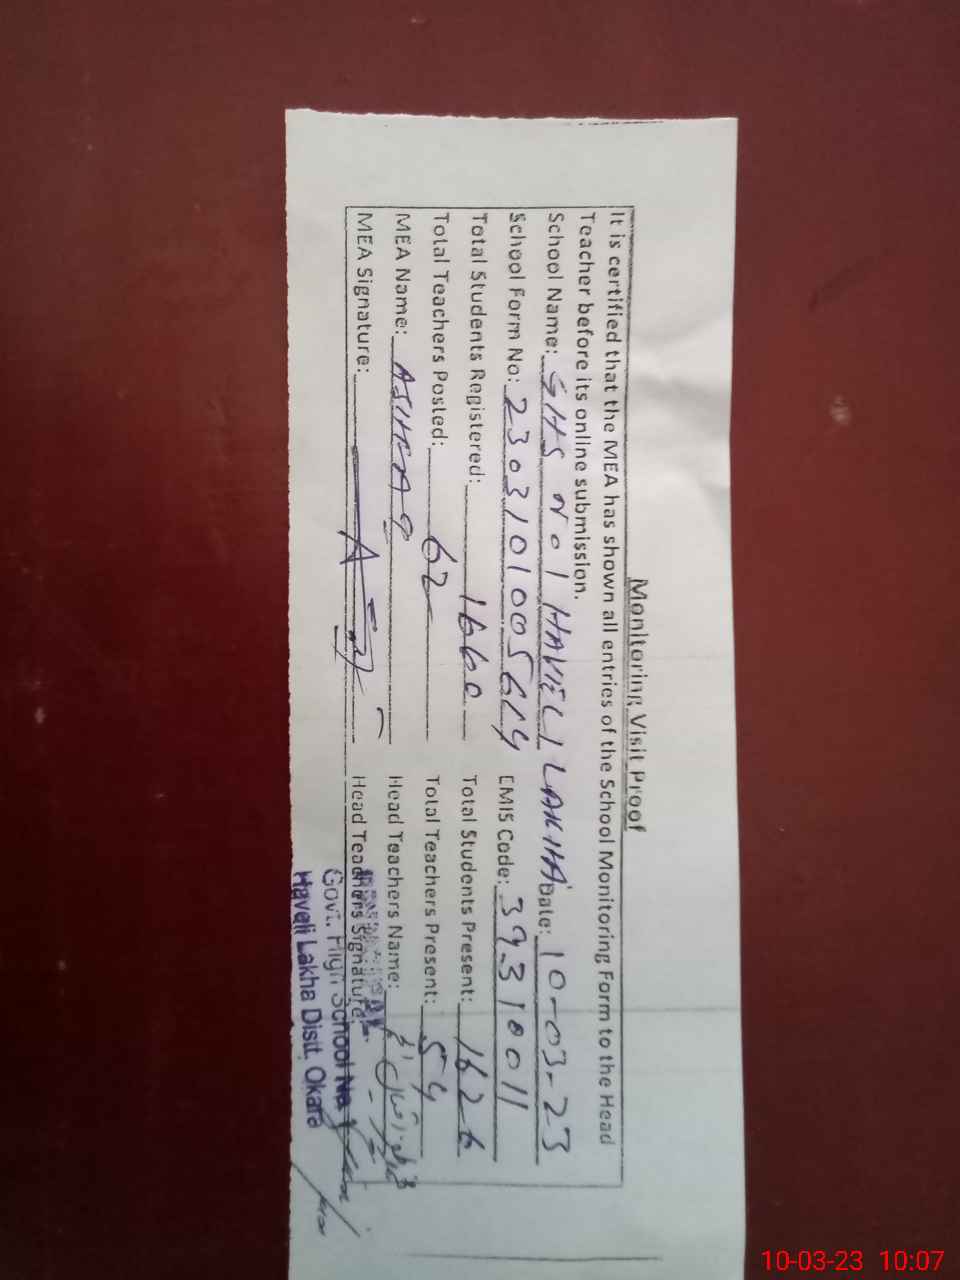 Monitoring Visit Proof
It is certified that the MEA has shown all entries of the School Monitoring Form to the Head
Teacher before its online submission.
School Name: GHS No 1 HAVELI LAKHA Date: 10-03-23
School Form No: 23031010056 EMIS Code: 39310011
Total Students Registered: 1660 Total Students Present: 1626
Total Teachers Posted: 62 Total Teachers Present: 54
MEA Name: Head Teachers Name:
MEA Signature: Head Teachers Signature:
Govt. High School No. 1
Haveli Lakha Distt. Okara
10-03-23 10:07